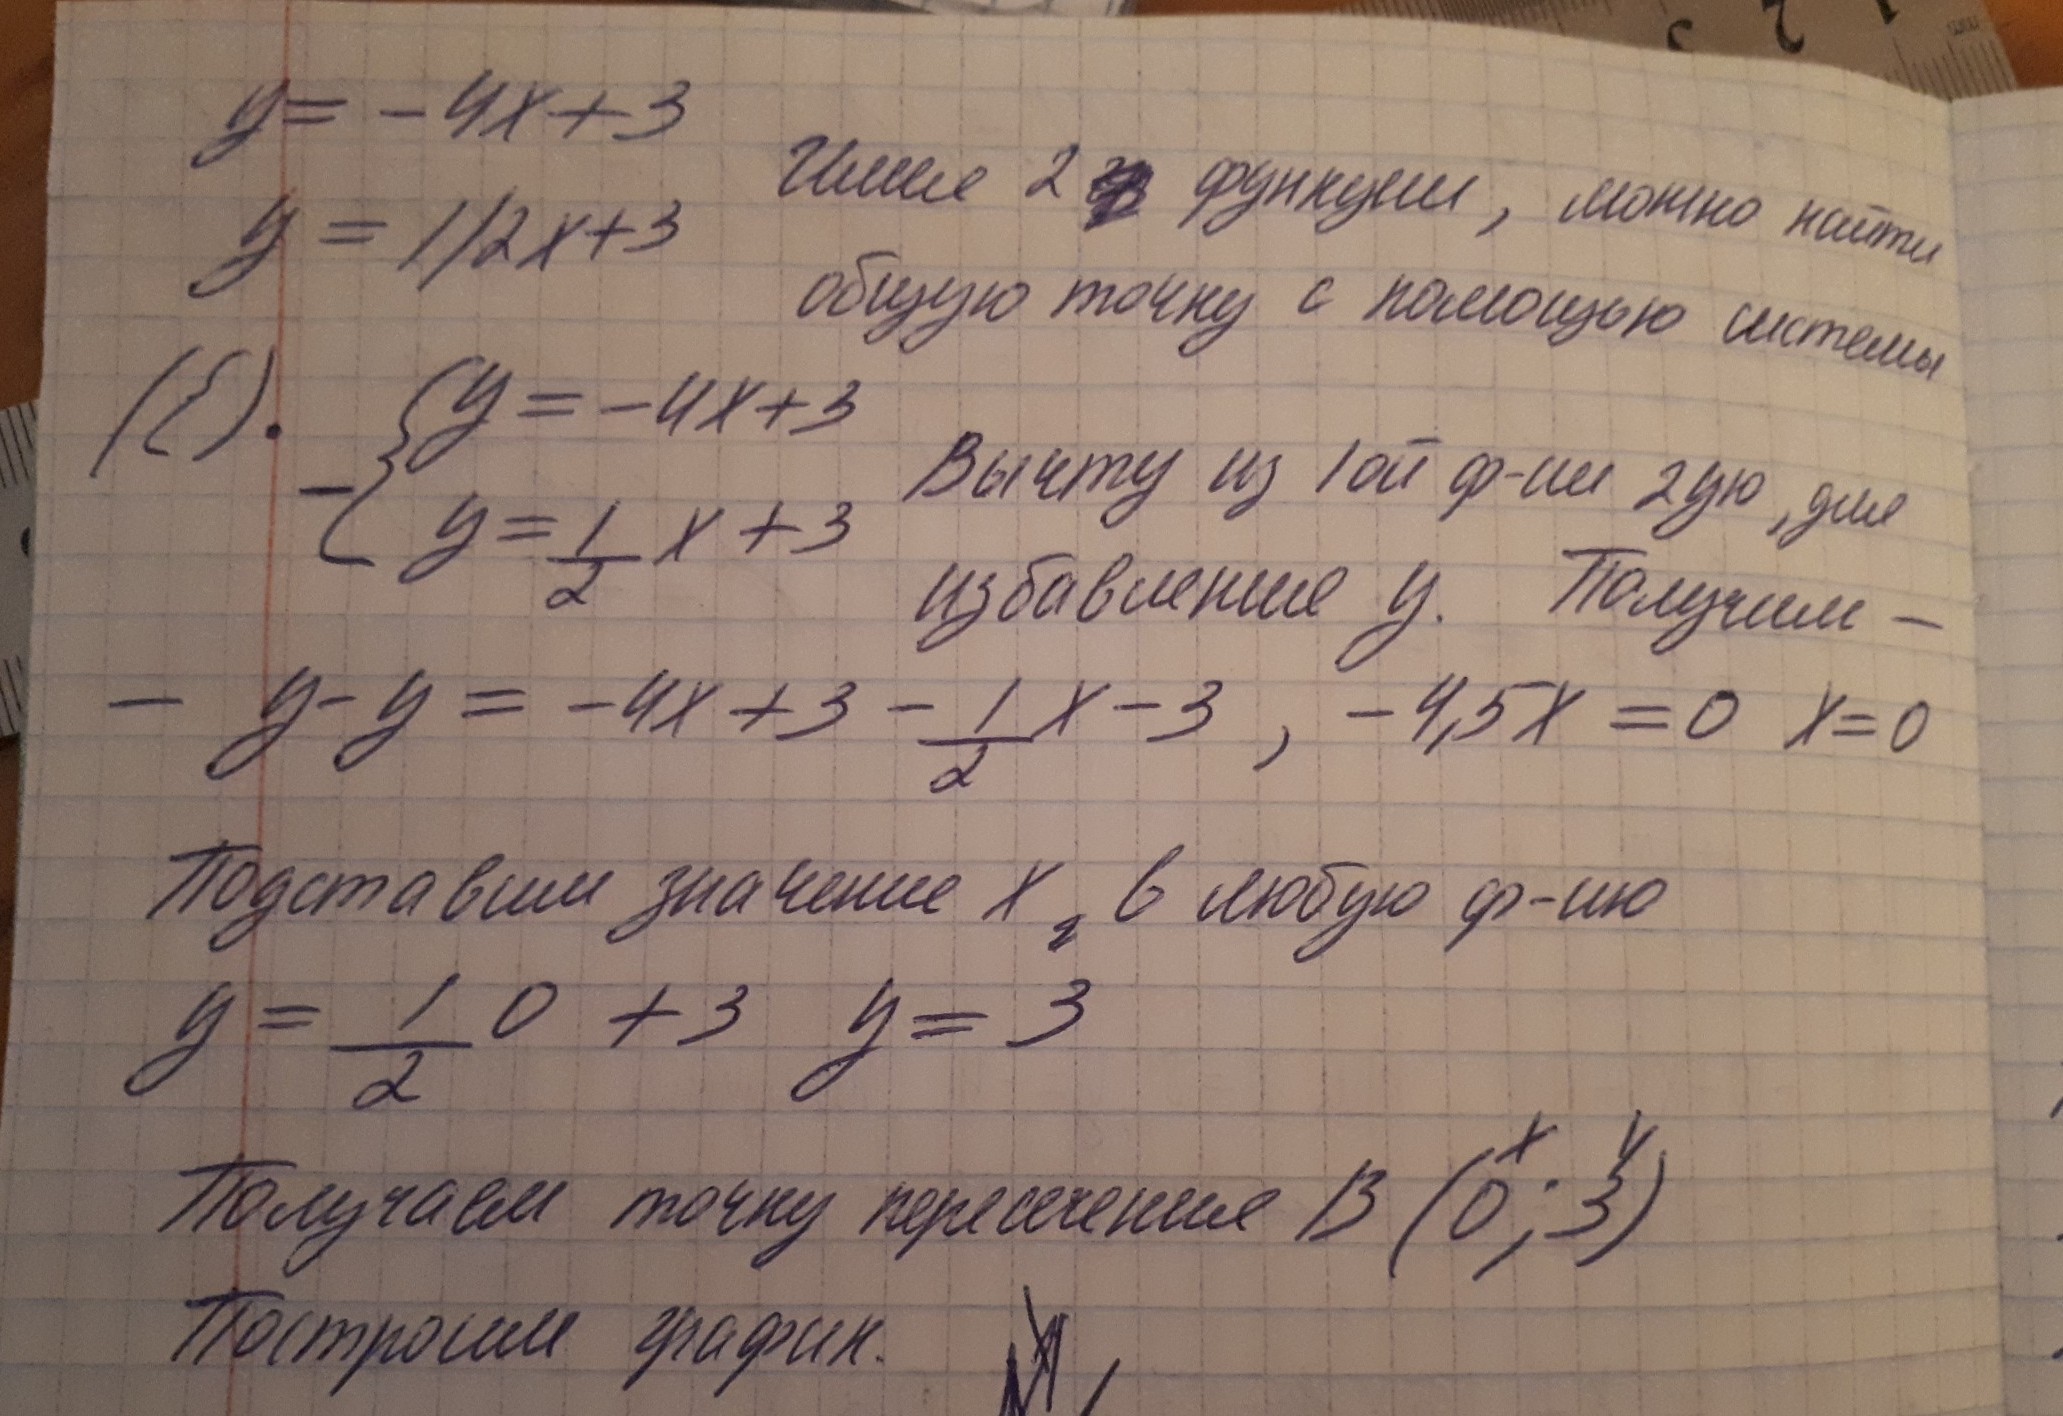 y = -4x+3
Имея 2 функции, можно найти
y = 1/2x+3
общую точку с помощью системы
({). {y = -4x+3
Вычту из 1ой ф-ии 2ую, для
- {y = 1/2 x + 3
избавление y. Получим -
- y - y = -4x + 3 - 1/2 x - 3 , -4,5x = 0 x = 0
Подставим значение x, в любую ф-ию
y = 1/2 0 + 3 y = 3
x y
Получаем точку пересечения B (0; 3)
Построим график.